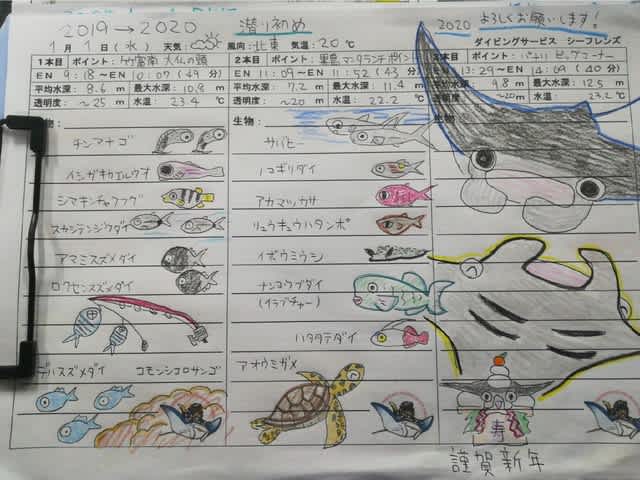 2019→2020 潜り初め 2020 よろしくお願いします!
1月1日(水) 天気: 風向:北東 気温:20℃ ダイビングサービス シーフレンズ
1本目 ポイント:竹富南 大仏の頭
EN 9:18~EX 10:07 (49分)
平均水深: 8.6 m 最大水深: 10.8 m
透明度: ~25 m 水温: 23.4 ℃
生物:
チンアナゴ
イシガキカエルウオ
シマキンチャクフグ
スカシテンジクダイ
アマミスズメダイ
ロクセンスズメダイ
デバスズメダイ コモンシコロサンゴ
2本目 ポイント:黒島 マンタランチポイント
EN 11:09~EX 11:52 (43分)
平均水深: 7.2 m 最大水深: 11.4 m
透明度: ~20m 水温: 22.2 ℃
生物:
サバヒー
ノコギリダイ
アカマツカサ
リュウキュウハタンポ
イボウミウシ
ナンヨウブダイ
(イラブチャー)
ハタタテダイ
アオウミガメ
13:29~EX 14:09 (40分)
9.8 m 最大水深: 12.5 m
~20m 水温: 23.2℃
生物:
寿
謹賀新年